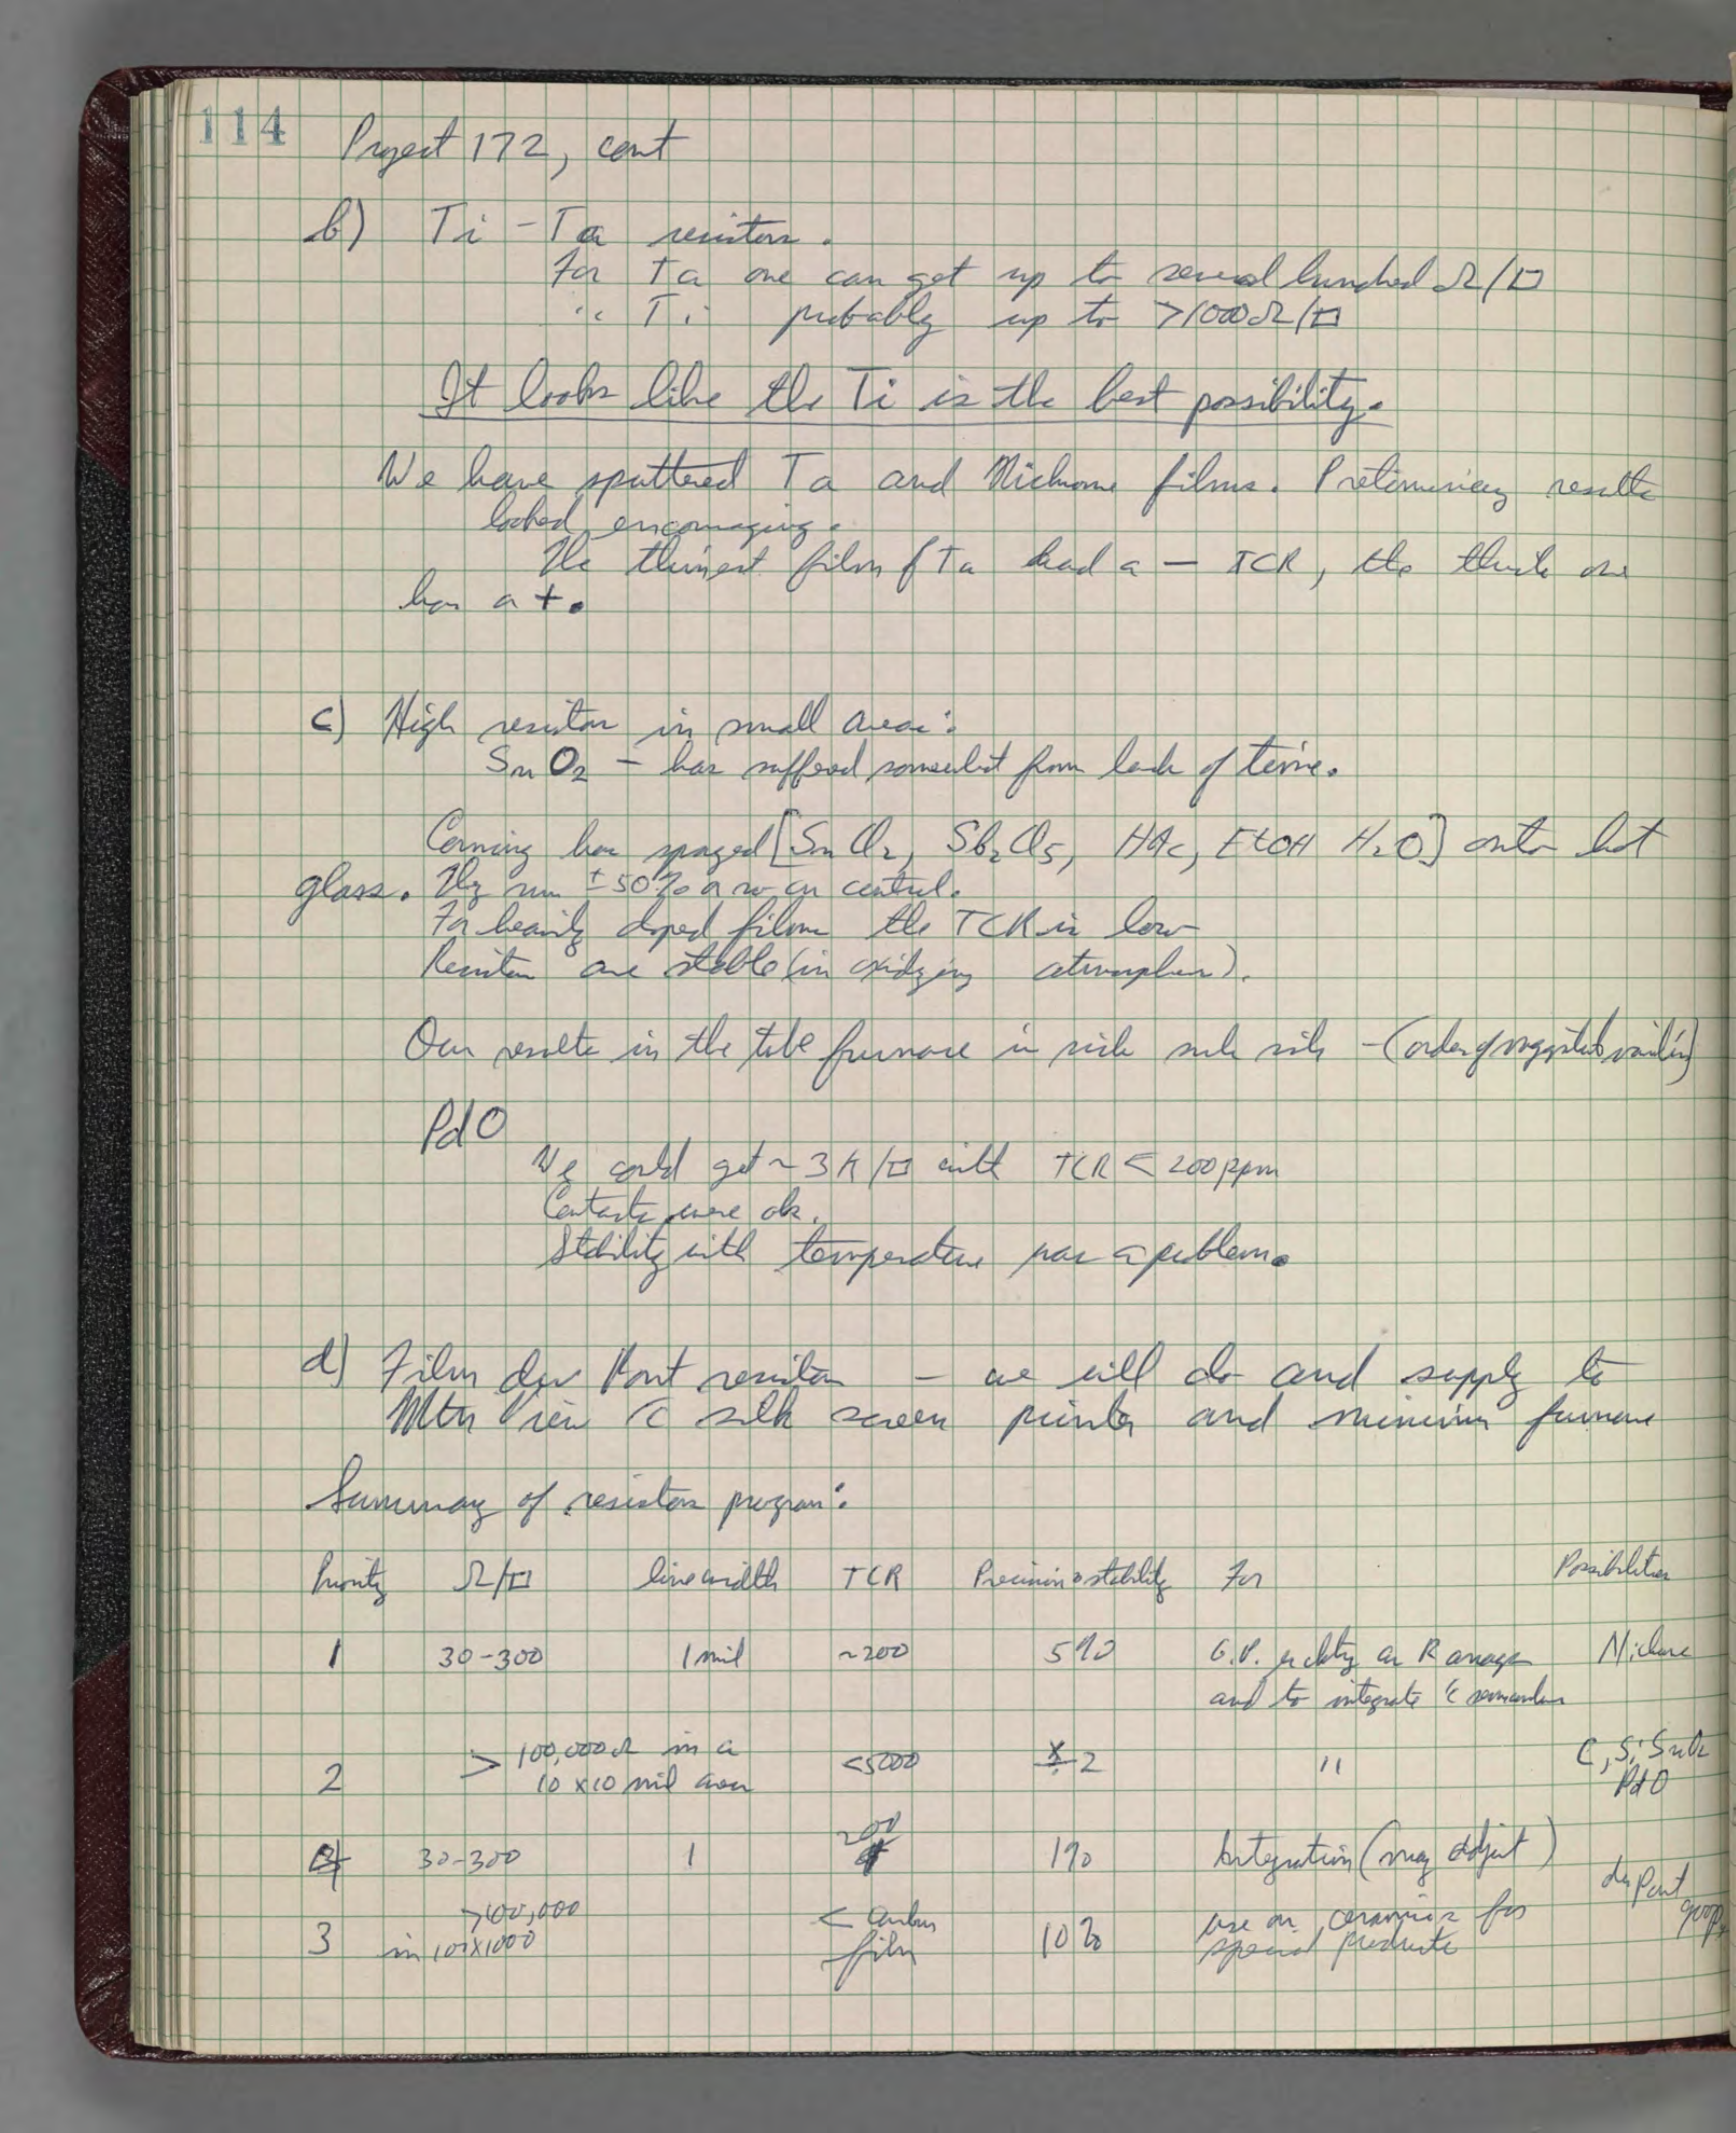 114
Project 172, cont
b) Ti - Ta resistors.
For Ta one can get up to several hundred Ω/□
" Ti probably up to >1000Ω/□
It looks like the Ti is the best possibility.
We have sputtered Ta and Nichrome films. Preliminary results
looked encouraging.
The thinnest film of Ta had a - TCR, the thick one
has a +.
c) High resistor in small area:
SnO2 - has suffered somewhat from lack of time.
Corning has sprayed [SnCl2, Sb2Cl5, HAc, EtOH H2O] onto hot
glass. They run ±50% or so on control.
For heavily doped films the TCR is low
Resistors are stable (in oxidizing atmosphere).
Our results in the tube furnace is - (order of magnitude
PdO
We could get ~ 3K/□ with TCR < 200ppm
Contacts were ok.
Stability with temperature was a problem.
d) Film du Pont resistor - we will do and supply to
Mtn View c̄ silk screen printer and furnace
Summary of resistor program:
Priority Ω/□ line width TCR Precision + stability For Possibilities
1 30-300 1 mil ~200 5% G.P. or R arrays Nichrome
and to integrate c̄
2 > 100,000Ω in a <5000 2 " C, Si, SnO2
10 x 10 mil area PdO
4 30-300 1 200 1% Integration (may adjust)
du Pont
>100,000 < carbon use on ceramics for goop
3 in 100x1000 film 10% special products